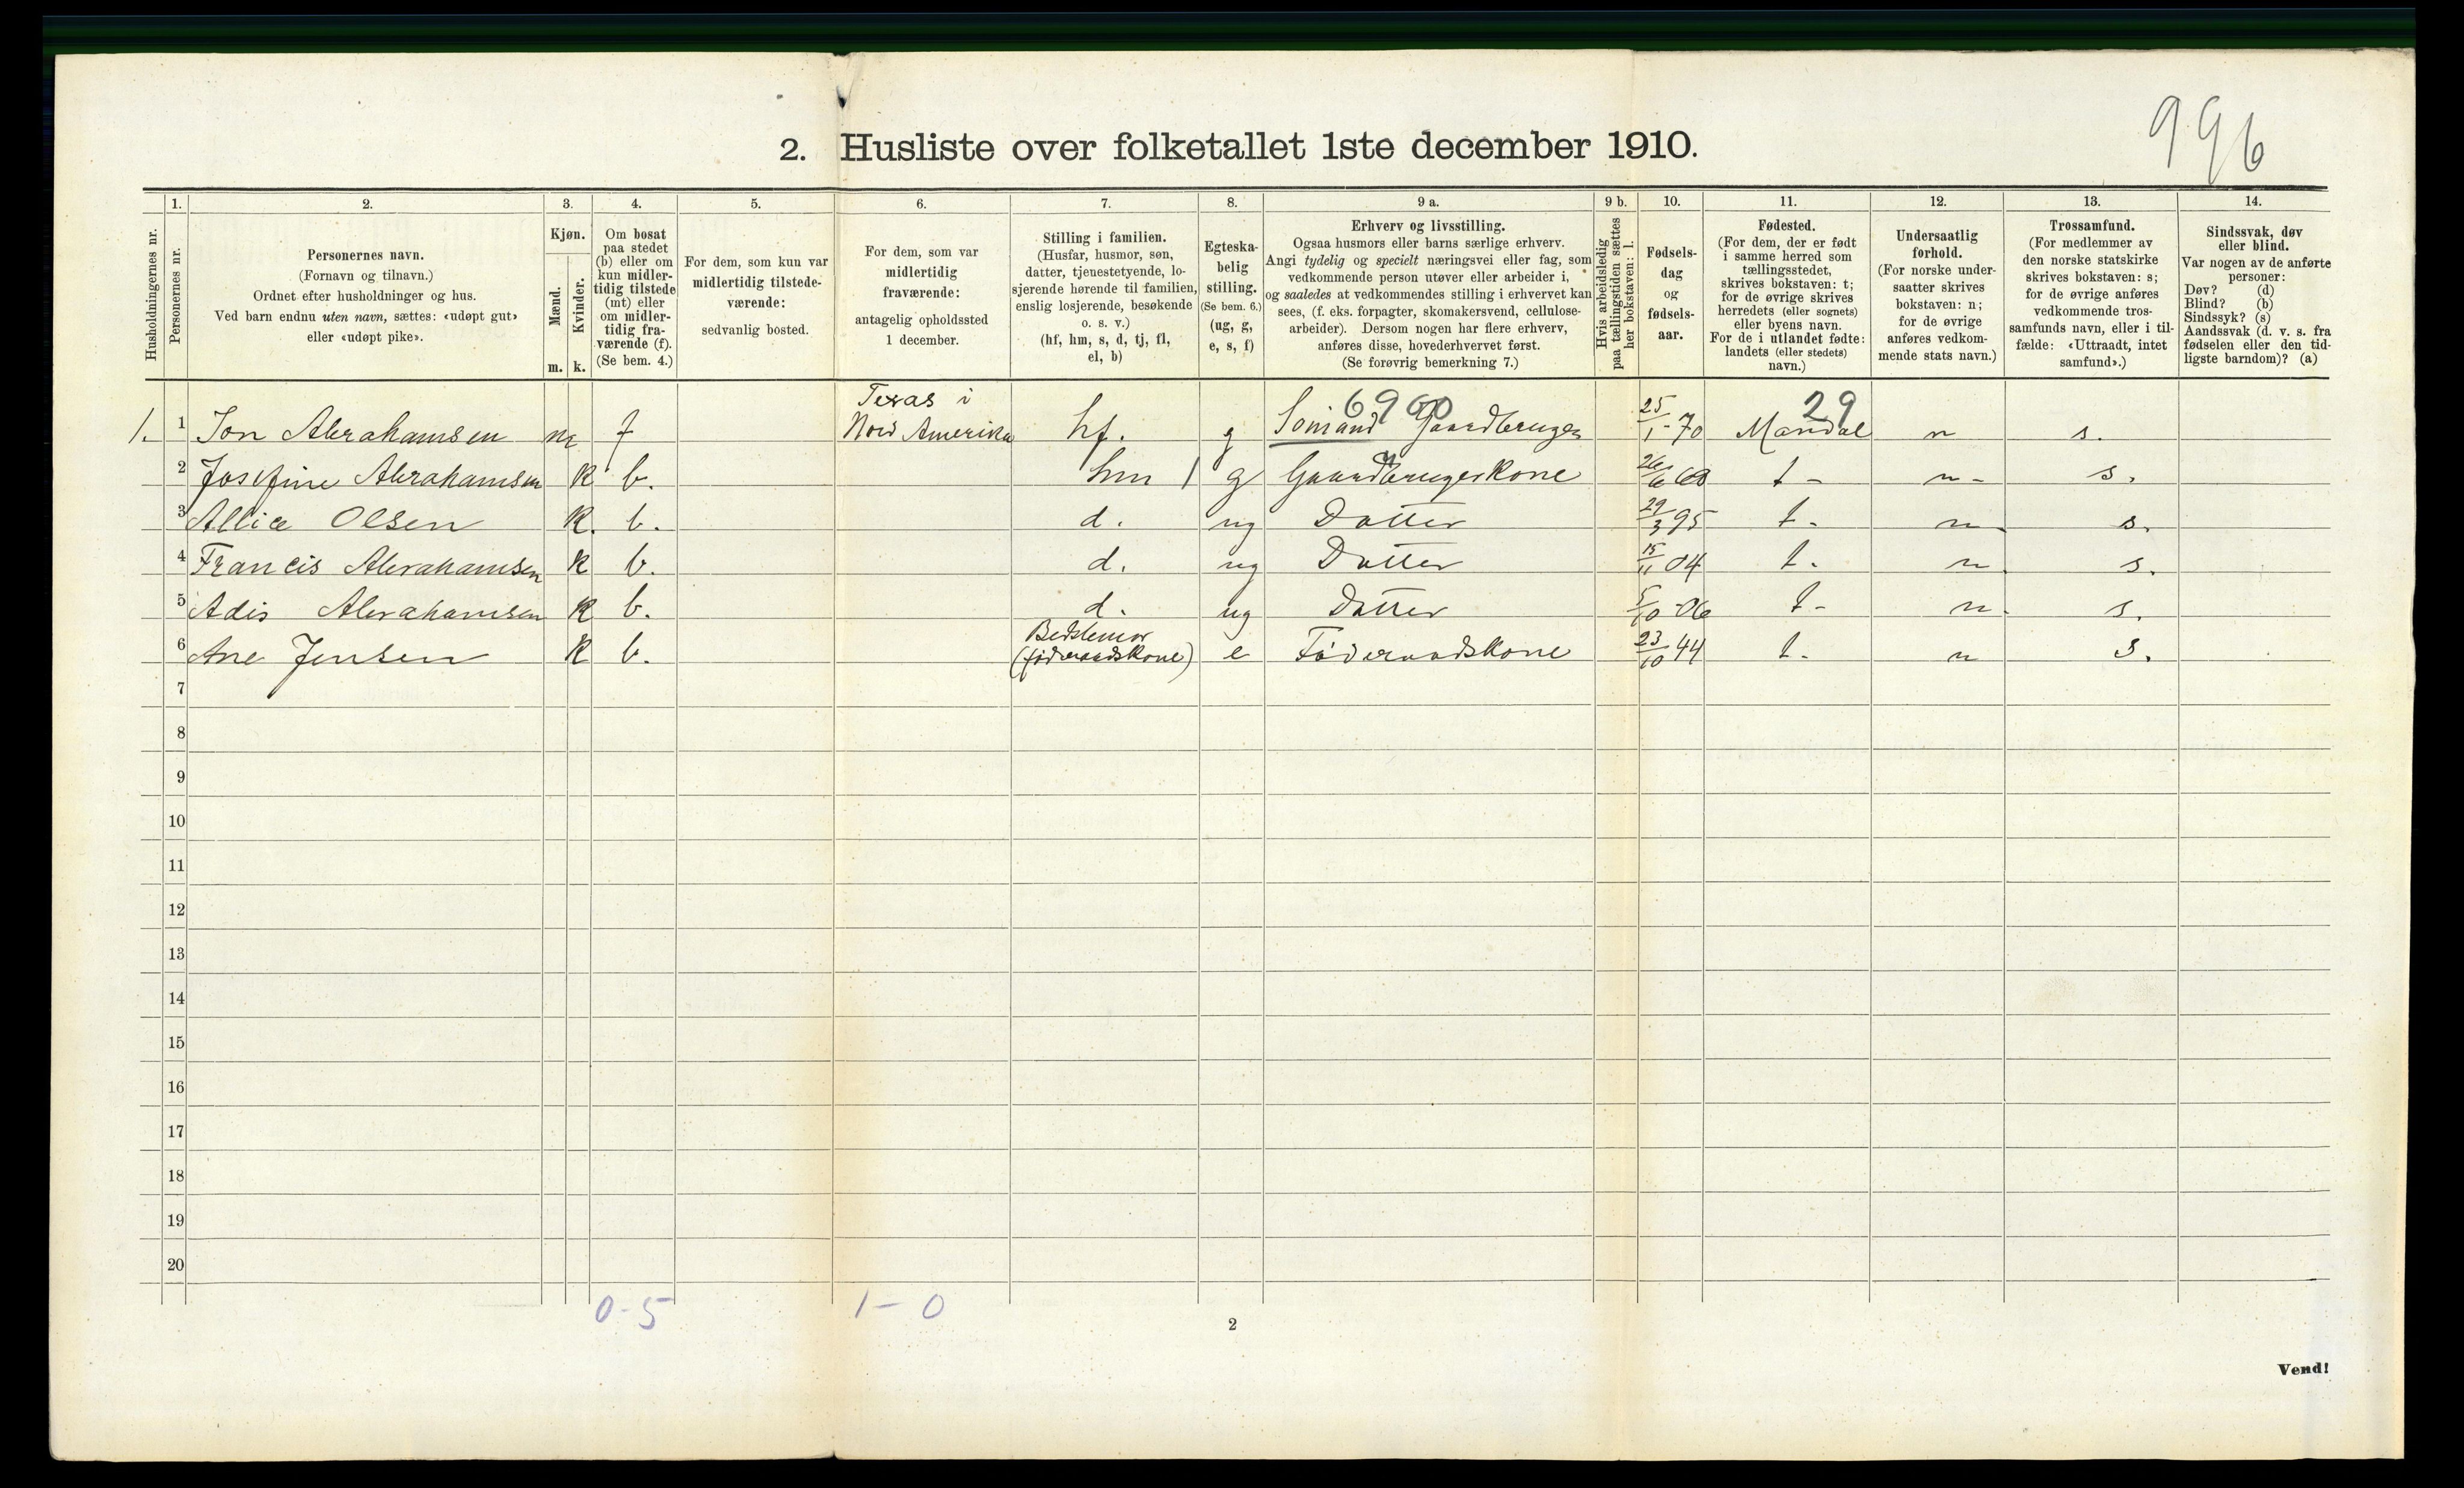 996
2. Husliste over folketallet 1ste december 1910.
Husholdningernes nr.
1. Personernes nr.
2. Personernes navn.
(Fornavn og tilnavn.)
Ordnet efter husholdninger og hus.
Ved barn endnu uten navn, sættes: «udøpt gut»
eller «udøpt pike».
3. Kjøn.
Mænd. Kvinder.
m. k.
4. Om bosat
paa stedet
(b) eller om
kun midler-
tidig tilstede
(mt) eller
om midler-
tidig fra-
værende (f).
(Se bem. 4.)
5. For dem, som kun var
midlertidig tilstede-
værende:
sedvanlig bosted.
6. For dem, som var
midlertidig
fraværende:
antagelig opholdssted
1 december.
7. Stilling i familien.
(Husfar, husmor, søn,
datter, tjenestetyende, lo-
sjerende hørende til familien,
enslig losjerende, besøkende
o. s. v.)
(hf, hm, s, d, tj, fl,
el, b)
8. Egteska-
belig
stilling.
(Se bem. 6.)
(ug, g,
e, s, f)
9 a. Erhverv og livsstilling.
Ogsaa husmors eller barns særlige erhverv.
Angi tydelig og specielt næringsvei eller fag, som
vedkommende person utøver eller arbeider i,
og saaledes at vedkommendes stilling i erhvervet kan
sees, (f. eks. forpagter, skomakersvend, cellulose-
arbeider). Dersom nogen har flere erhverv,
anføres disse, hovederhvervet først.
(Se forøvrig bemerkning 7.)
9 b. Hvis arbeidsledig
paa tællingstiden sættes
her bokstaven: l.
10. Fødsels-
dag
og
fødsels-
aar.
11. Fødested.
(For dem, der er født
i samme herred som
tællingsstedet,
skrives bokstaven: t;
for de øvrige skrives
herredets (eller sognets)
eller byens navn.
For de i utlandet fødte:
landets (eller stedets)
navn.)
12. Undersaatlig
forhold.
(For norske under-
saatter skrives
bokstaven: n;
for de øvrige
anføres vedkom-
mende stats navn.)
13. Trossamfund.
(For medlemmer av
den norske statskirke
skrives bokstaven: s;
for de øvrige anføres
vedkommende tros-
samfunds navn, eller i til-
fælde: «Uttraadt, intet
samfund».)
14. Sindssvak, døv
eller blind.
Var nogen av de anførte
personer:
Døv? (d)
Blind? (b)
Sindssyk? (s)
Aandssvak (d. v. s. fra
fødselen eller den tid-
ligste barndom)? (a)
Texas i 6900 29
1. 1 Jon Abrahamsen m f Nord Amerika hf. g Sömand Gaardbruger 25/1-70 Mandal n s.
2 Josefine Abrahamsen k b. hm 1 g Gaardbrugerkone 26/6 68 t - n - s.
3 Allice Olsen k. b. d. ug Datter 29/3 95 t. n. s.
4 Francis Abrahamsen k b. d. ug Datter 15/11 04 t. n. s.
5 Adis Abrahamsen k b. d. ug Datter 5/10 06 t - n. s.
Bedstemor
6 Ane Jensen k b. (föderaadskone) e Föderaadskone 23/10 44 t. n s.
7
8
9
10
11
12
13
14
15
16
17
18
19
20
0-5 1-0
2
Vend!